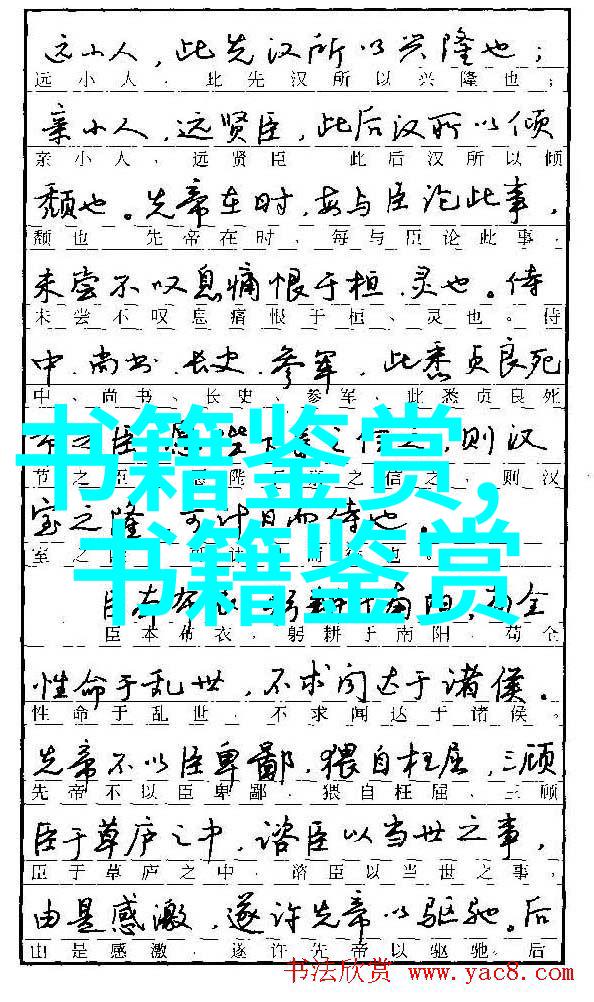 远小人，此先汉所以兴隆也；
远小人，此先汉所以兴隆也；
亲小人，远贤臣，此后汉所以倾
亲小人，远贤臣 此后汉所以倾
颓也。先帝在时，每与臣论此事，
颓也 先帝在时，每与臣论此事，
未尝不叹息痛恨于桓、灵也。侍
未尝不叹息痛恨于桓、灵也。侍
中、尚书、长史、参军，此悉贞良死
中、尚书、长史、参军，此悉贞良死
书籍鉴赏,
节之臣 之信之，则汉
节之臣 陛 之信之，则汉
室之隆，可计日而待也。
室之 计 而 也。
书籍鉴赏
臣本布衣 躬耕于南阳，苟全
臣本布衣，躬耕于南阳，苟全
性命于乱世，不求闻达于诸侯。
性命于乱世，不求闻达于诸侯。
先帝不以臣卑鄙，猥自枉屈，三顾
先帝不以臣卑鄙，猥自枉屈、三顾
臣于草庐之中，谘臣以当世之事，
臣于草庐之中，谘臣以当世之事，
由是感激，遂许先帝以驱驰。后
由是感激，遂许先帝以驱驰。后
书法欣赏 www.yac8.com